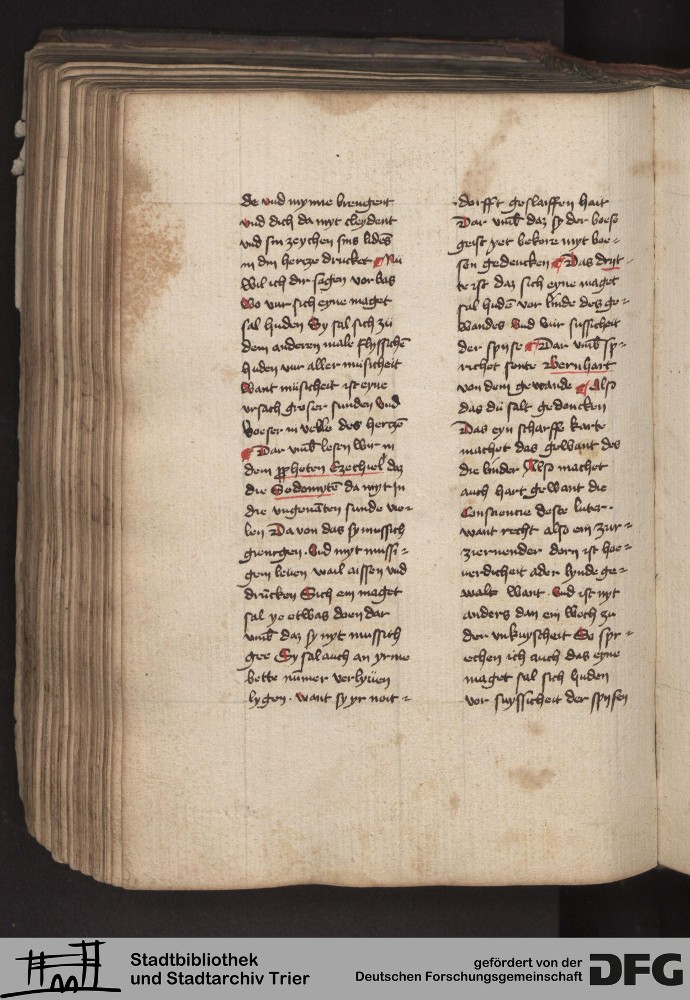 de vnd mynne brengent
vnd dich da myt cleydent
vnd sin zeychen sins lidēs
in din hertze drucket Nu
wil ich dir sagen vor bas
wo vur sich eyne maget
sal huden Sy sal sich zü
dem anderen male flyssichē
huden vur aller müsicheit
Want müsicheit ist eyne
vrsach groser sunden vnd
boeser in velle des hertzē
Dar vmb lesen wir in
dem ppheten Ezechiel daz
die Sodomytē da myt in
die vngenātten sunde vie-
len Da von das sy mussich
giengen. Vnd myt mussi-
gem leben wail aissen vnd
drūcken Sich ein maget
sal ye etwas doen dar
vmb daz sy nyt mussich
gee Sy sal auch an yrme
bette nūmer verlyüen
lygen. want sy yr noit-
dorfft geslaiffen hait
Dar vmb daz sy der boese
geist yet bekore myt boe-
sen gedencken Das drit-
te ist daz sich eyne maget
sal hudē vor linde des ge-
wandes Vnd vür sussicheit
der spyse Dar vmb sp-
richet sente Bernhart
von dem gewande Also
das dü salt gedencken
Das eyn scharffe karte
machet das gewant des
die binder Also machet
auch hart gewant die
Consciencie deste luter.
want recht also ein zur-
ziernender dorn ist hoe-
uerdicheit ader lynde ge-
walt want. Vnd ist nyt
anders dan ein woch zu
der vnkuyscheit So spr-
echen ich auch das eyne
maget sal sich huden
vor suyssicheit der spysen
Stadtbibliothek
und Stadtarchiv Trier
gefördert von der
Deutschen Forschungsgemeinschaft
DFG